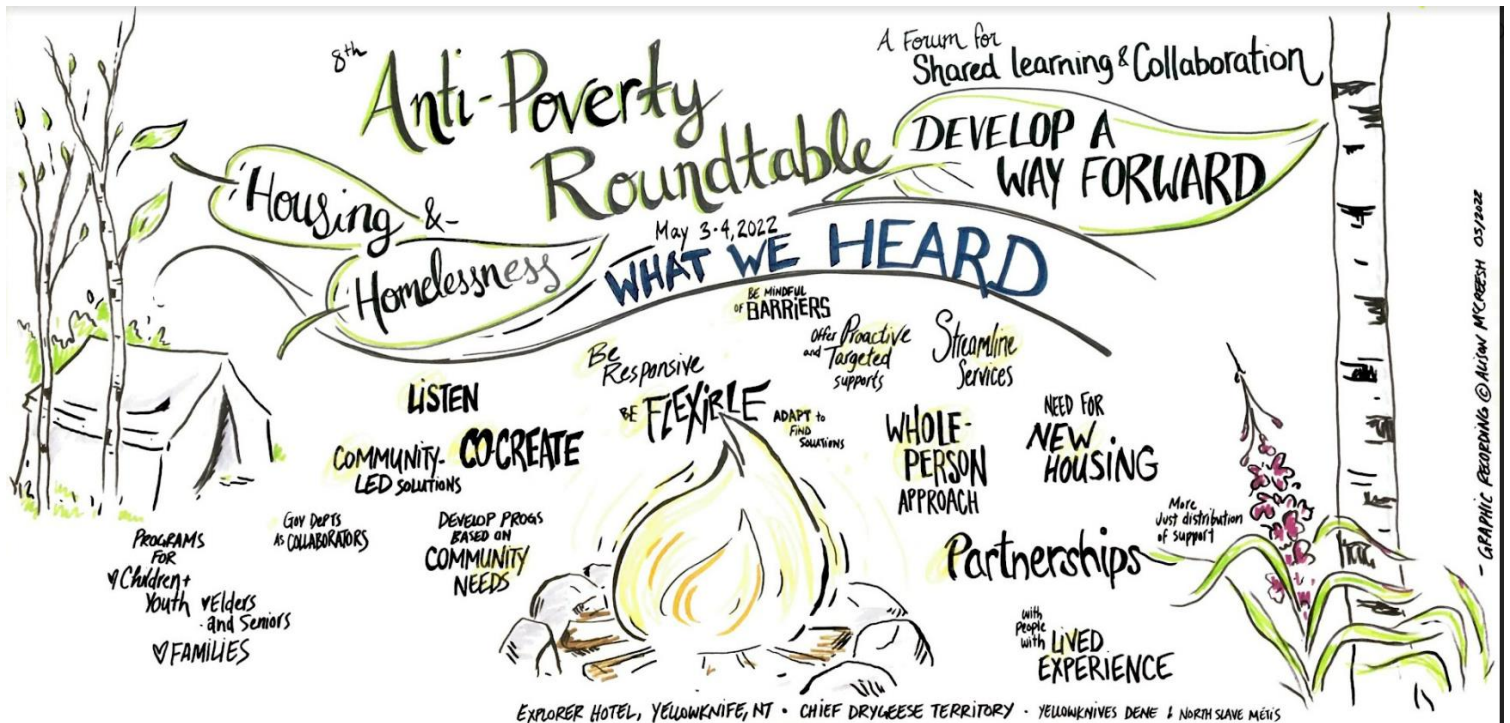 8th
Anti-Poverty
Roundtable
A Forum for
Shared learning & Collaboration
DEVELOP A
WAY FORWARD
Housing &-
Homelessness
May 3-4, 2022
WHAT WE HEARD
BE MINDFUL
OF BARRIERS
Be
Responsive
Offer Proactive
and Targeted
supports
Streamline
Services
LISTEN
BE FLEXIBLE
ADAPT to
FIND
SOLUTIONS
COMMUNITY-
LED SOLUTIONS
CO-CREATE
WHOLE-
PERSON
APPROACH
NEED FOR
NEW
HOUSING
PROGRAMS
FOR
Children +
Youth
Elders
and Seniors
FAMILIES
GOV DEPTS
AS COLLABORATORS
DEVELOP PROGS
BASED ON
COMMUNITY
NEEDS
More
Just distribution
of support
Partnerships
with
People
with LIVED
EXPERIENCE
EXPLORER HOTEL, YELLOWKNIFE, NT • CHIEF DRYGEESE TERRITORY - YELLOWKNIVES DENE & NORTH SLAVE MÉTIS
- GRAPHIC RECORDING @ ALISON MCCREESH 05/2022